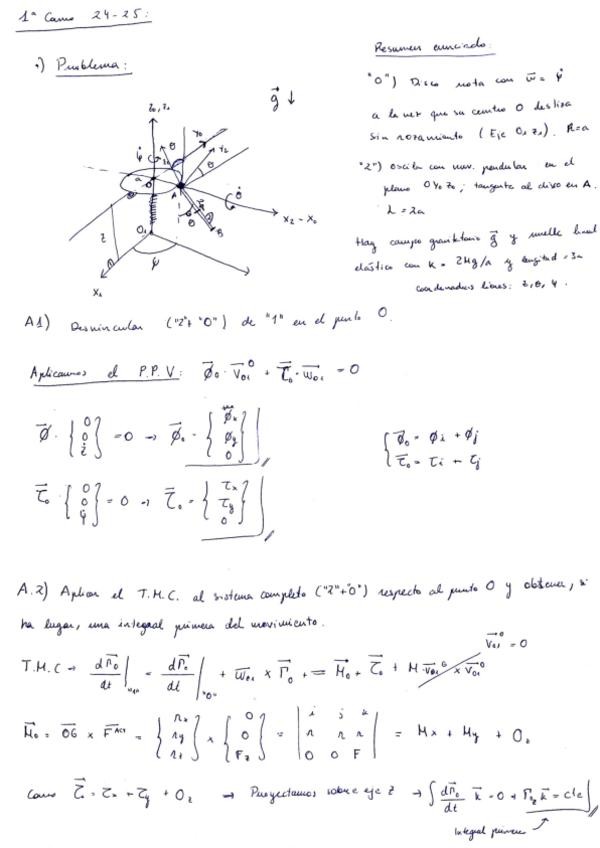 1ª Convo 24-25:
·) Problema:
Resumen enunciado:
"0") Disco rota con ω̄ = ψ̇
a la vez que su centro O desliza
sin rozamiento (Eje O₁z₁). R=a
"2") oscila con mov. pendular en el
plano OY₀Z₀; tangente al disco en A.
L = 2a
Hay campo gravitatorio g⃗ y muelle lineal
elástico con K = 2Mg/a y longitud = 3a
coordenadas libres: z, θ, ψ.
z₀, z₁
g⃗ ↓
Y₀
z₂
θ
ψ̇
a
O
A
θ̇
B
X₂ - X₀
z
O₁
ψ
X₁
A1) Desvincular ("2"+"0") de "1" en el punto O.
Aplicamos el P.P.V: φ̄₀ · V̄₀₁⁰ + τ̄₀ · ω̄₀₁ = 0
φ̄ · {0 0 ż} = 0 → φ̄₀ = {φx φy 0}
{φ̄₀ = φi + φj
τ̄₀ = τi + τj
τ̄₀ · {0 0 ψ̇} = 0 → τ̄₀ = {τx τy 0}
A.2) Aplicar el T.M.C. al sistema completo ("2"+"0") respecto al punto O y obtener, si
ha lugar, una integral primera del movimiento.
V̄₀₁⁰ = 0
T.M.C → dΓ̄₀/dt|"1" = dΓ̄₀/dt|"0" + ω̄₀₁ × Γ̄₀ = M̄₀ + τ̄₀ + M · V̄₀₁⁰ × V̄₀₁ᴳ
M̄₀ = OG × F̄ᴬᶜᵀ = {rx ry rz} × {0 0 Fz} = |i j k r r r 0 0 F| = Mx + My + 0z
Como τ̄₀ = τx + τy + 0z → Proyectamos sobre eje z → ∫ dΓ̄₀/dt k̄ = 0 → Γ₀z k̄ = cte
Integral primera